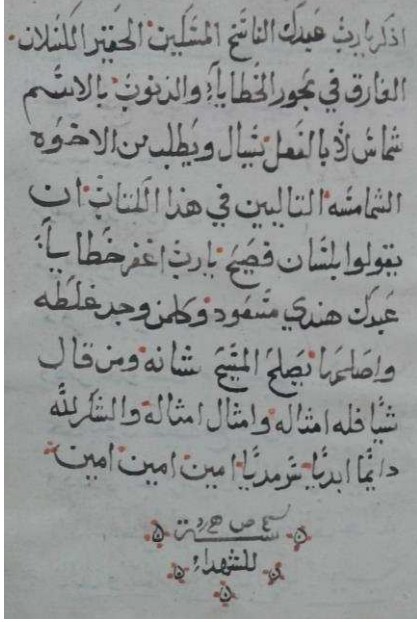 اذكر يارب عبدك الناسخ المسكين الحقير الكسلان
الغارق في بحور الخطايا والذنوب بالاسم
شماس لا بالفعل نسال ويطلب من الاخوه
الشمامسه التاليين في هذا الكتاب ان
يقولوا بلسان فصيح يارب اغفر خطايا
عبدك هندي مسعود وكلمن وجد غلطه
واصلحها يصلح المسيح شانه ومن قال
شيا فله امثاله وامثال امثاله والشكر لله
دايمًا ابديًا سرمديًا امين امين امين
سنة
للشهداء